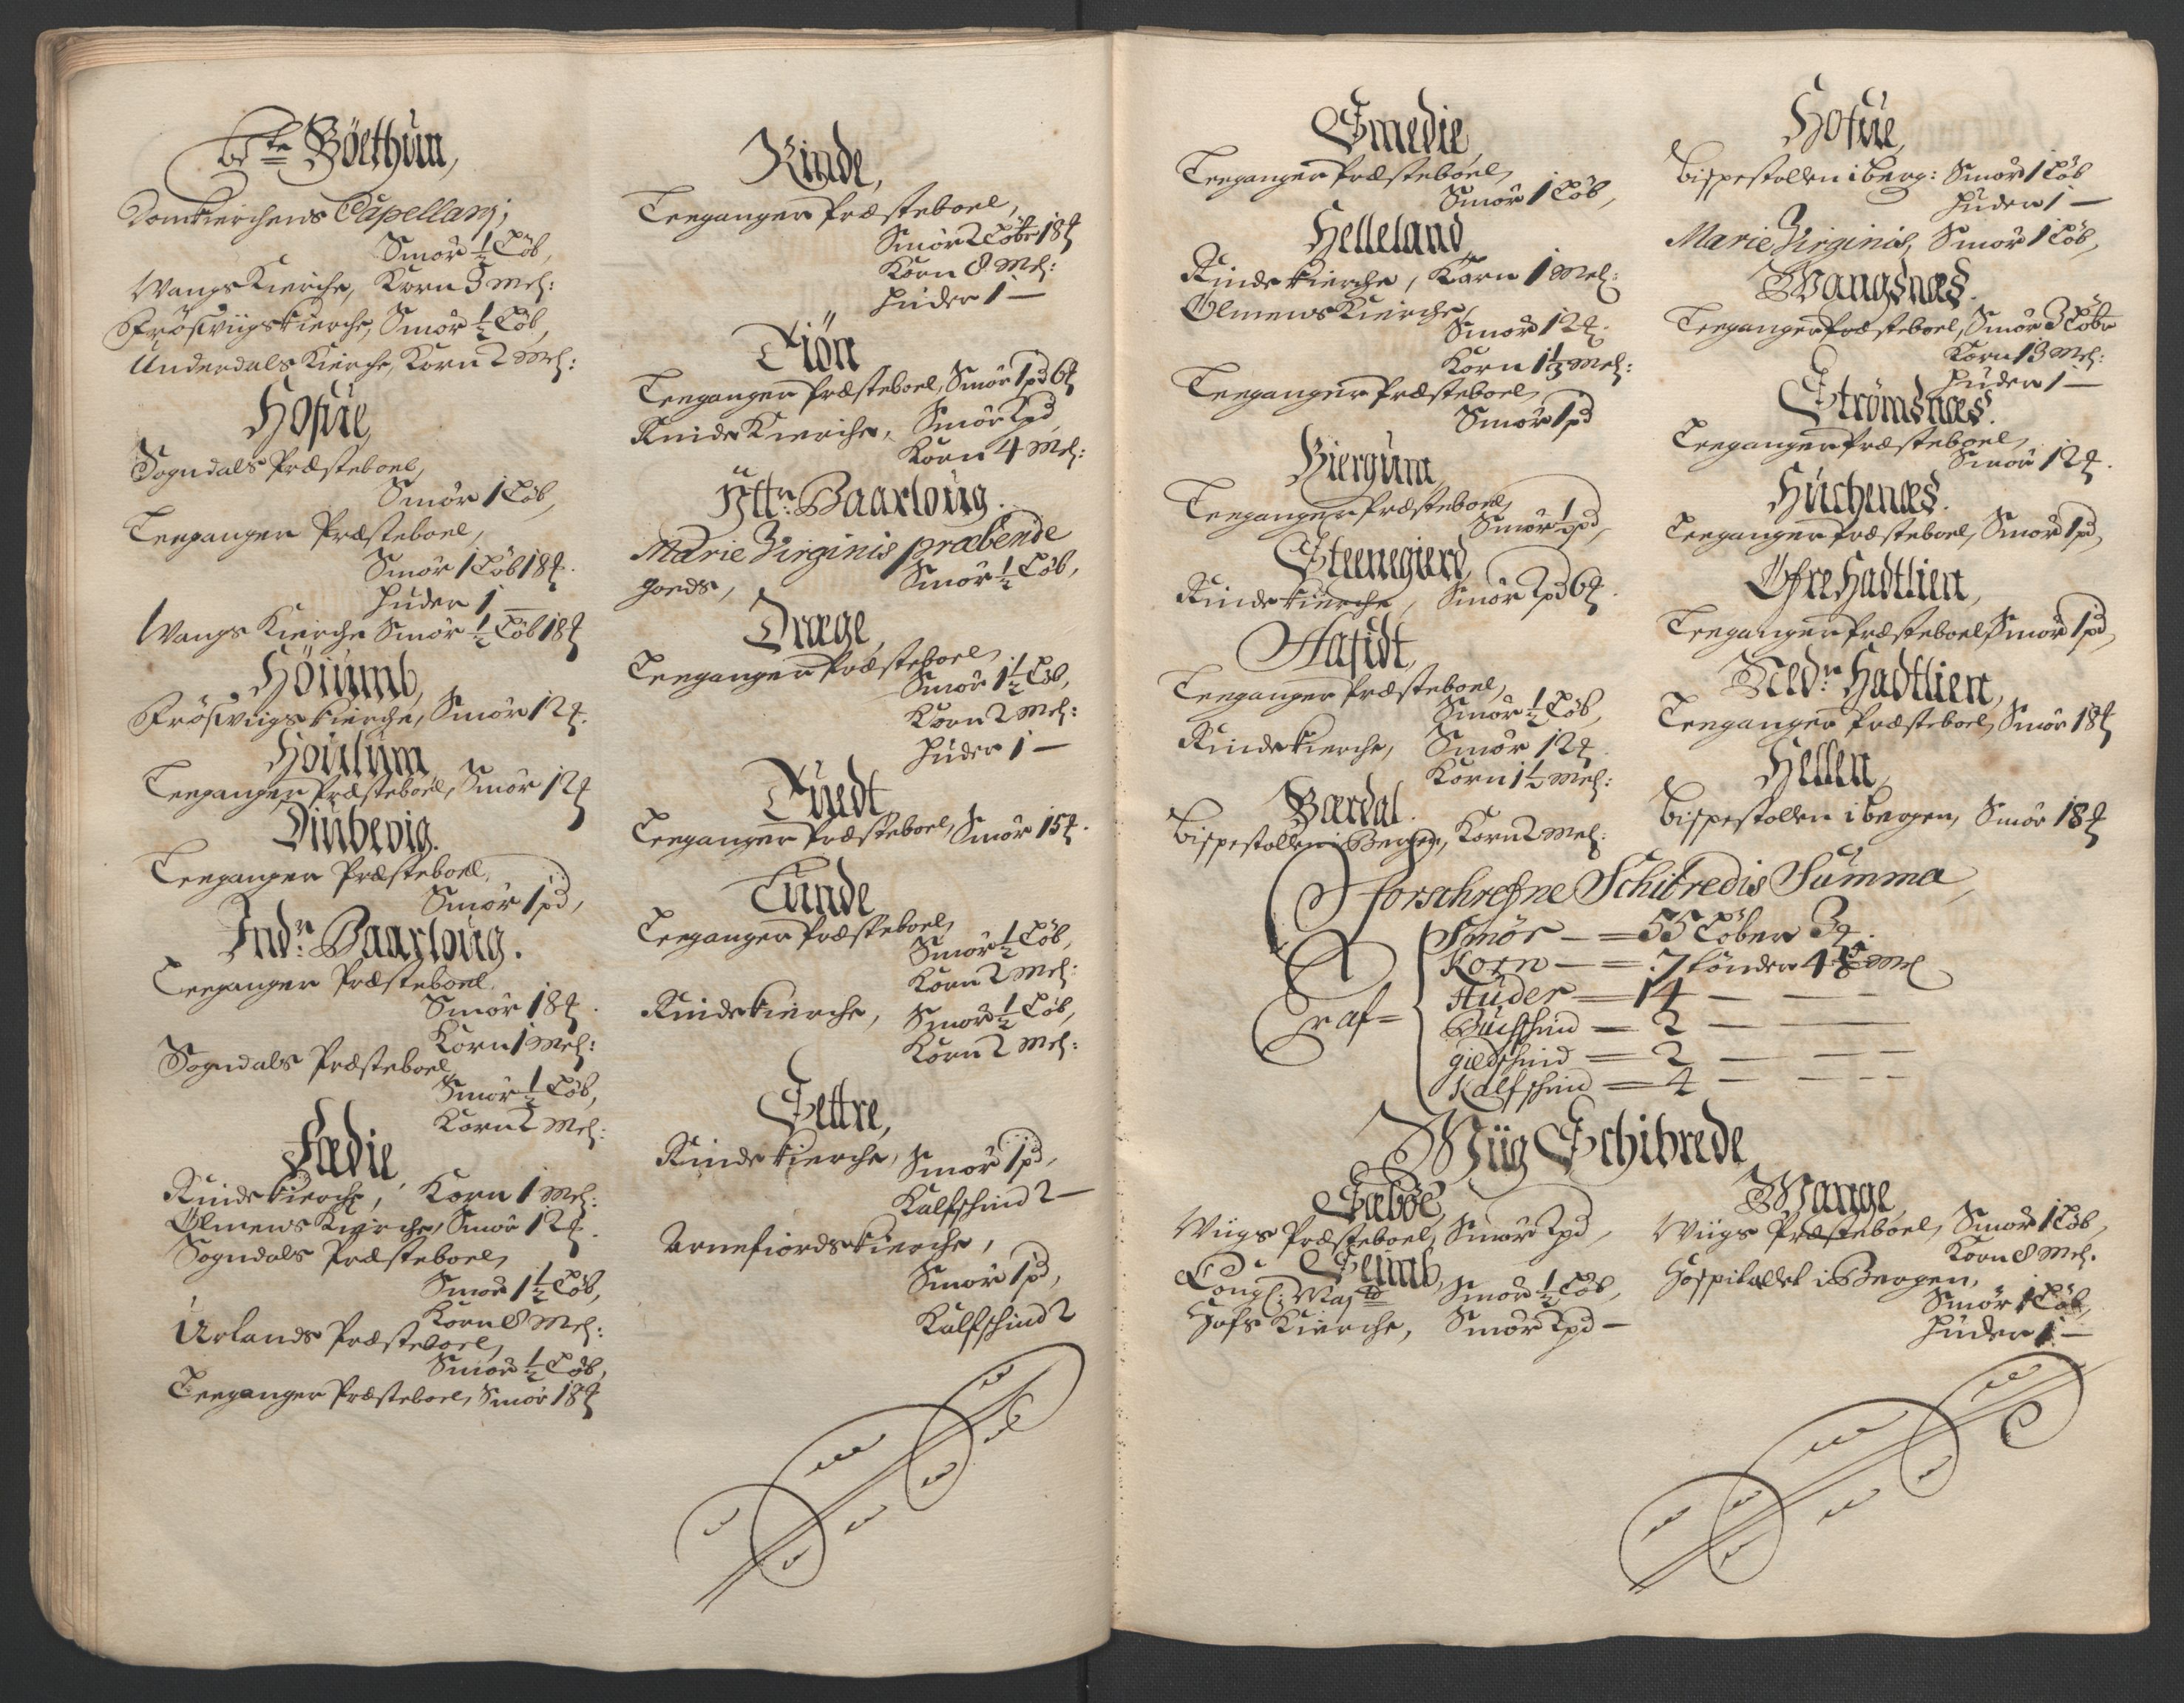 Böethun,
Domkierchens Capellanj,
Smör ½ Löb,
Wangs Kierche, Korn 3 Mel:
Frösviigs kierche, Smör ½ Löb,
Underdals Kierche, Korn 2 Mel:
Hofue,
Sogndals Præsteboel,
Smör 1 Löb,
Leeganger Præsteboel,
Smör 1 Löb 18 ℔.
Huder 1 —
Wangs Kierche Smör ½ Löb 18 ℔
Höiumb,
Frösviigs kierche, Smör 12 ℔.
Leeganger Præsteboel, Smör 12 ℔
Dinbevig.
Leeganger Præsteboel,
Smör 1 pd,
Indr: Baarloug.
Leeganger Præsteboel.
Smör 18 ℔.
Korn 1 Mel:
Sogndals Præsteboel,
Smör ½ Löb,
Korn 2 Mel:
Fædie
Rinde kierche, Korn 1 Mel:
Ölmens Kierche, Smör 12 ℔.
Sogndals Præsteboel,
Smör 1½ Löb,
Korn 8 Mel:
Urlands Præsteboel,
Smör ½ Löb,
Leeganger Præsteboel, Smör 18 ℔
Rinde,
Leeganger Præsteboel,
Smör 2 Löbr 18 ℔
Korn 8 Mel:
Huder 1 —
Tiön
Leeganger Præsteboel, Smör 1 pd 6 ℔
Rinde Kierche, Smör 2 pd
Korn 4 Mel:
Yttr: Baarloug.
Marie Virginis præbende
goeds, Smör ½ Löb,
Dræge,
Leeganger Præsteboel,
Smör 1½ Löb,
Korn 2 Mel:
Huder 1 —
Tuedt
Leeganger Præsteboel, Smör 15 ℔.
Lunde
Leeganger Præsteboel,
Smör ½ Löb,
Korn 2 Mel:
Rinde kierche, Smör ½ Löb,
Korn 2 Mel:
Settre,
Rinde kierche, Smör 1 pd,
Kalfschind 2 —
Arnefiords kierche,
Smör 1 pd,
Kalfschind 2
Smedie,
Leeganger Præsteboel,
Smör 1 Löb,
Helleland,
Rinde kierche, Korn 1 Mel:
Ölmens Kierche,
Smör 12 ℔.
Korn 1⅓ Mel:
Leeganger Præsteboel,
Smör 1 pd
Biergum,
Leeganger Præsteboel,
Smör ½ pd,
Steenegierd,
Rinde kierche, Smör 2 pd 6 ℔.
Leeganger Præsteboel,
Smör ½ Löb,
Rinde kierche, Smör 12 ℔.
Korn 1½ Mel:
Bærdal.
Bispestollen i Bergen, Korn 2 Mel:
Hofue,
Bispestollen i Berg: Smör 1 Löb
Huder 1 —
Marie Virginis, Smör 1 Löb,
Wangsnæs.
Leeganger Præsteboel, Smör 3 Löbr
Korn 13 Mel:
Huder 1 —
Strömsnæs.
Leeganger Præsteboel,
Smör 12 ℔.
Huchenæs.
Leeganger Præsteboel, Smör 1 pd,
Öfre Hadtlien,
Leeganger Præsteboel, Smör 1 pd,
Nedr: Hadtlien,
Leeganger Præsteboel, Smör 18 ℔
Hellen,
Bispestollen i Bergen, Smör 18 ℔
Forschrefne Schibredis Summa,
Smör — = 55 Löber 3 ℔.
Korn — = 7 tönder Mel
Huder — = 14 — — —
Buchschind = 2 — — —
giedschind = 2 — — —
Kalfschind = 4 — — —
Wiig Schibrede
Sæböe,
Wiigs Præsteboel, Smör 2 pd,
Seimb,
Kongl: Maytd Smör ½ Löb,
Hofs Kierche, Smör 2 pd —
Wange,
Wiigs Præsteboel, Smör 1 Löb,
Korn 8 Mel.
Hospitallet i Bergen,
Smör 1 Löb,
Huder 1 —